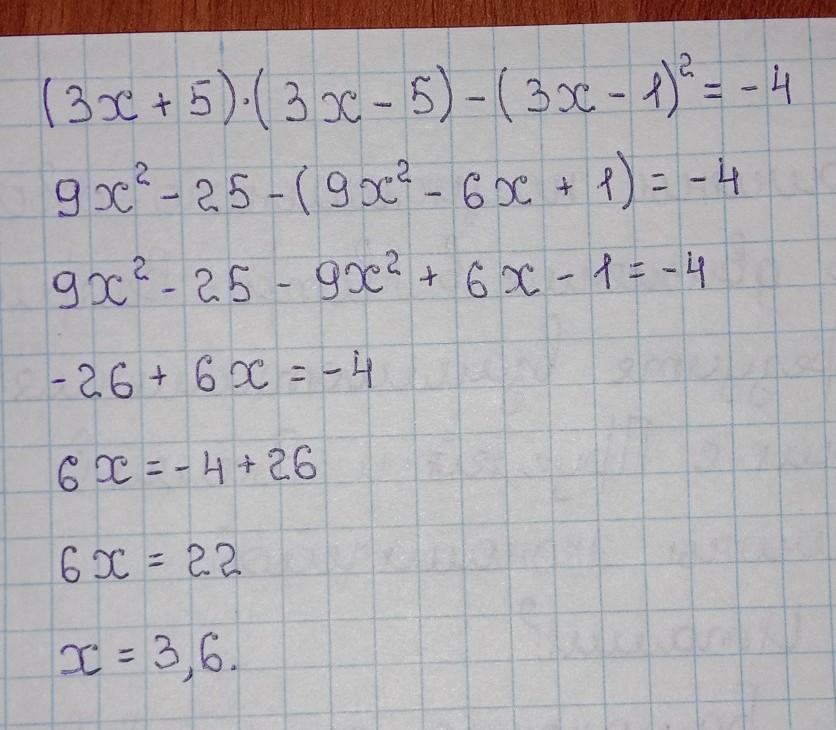 (3x + 5)·(3x - 5) - (3x - 1)² = -4
9x² - 25 - (9x² - 6x + 1) = -4
9x² - 25 - 9x² + 6x - 1 = -4
-26 + 6x = -4
6x = -4 + 26
6x = 22
x = 3,6.